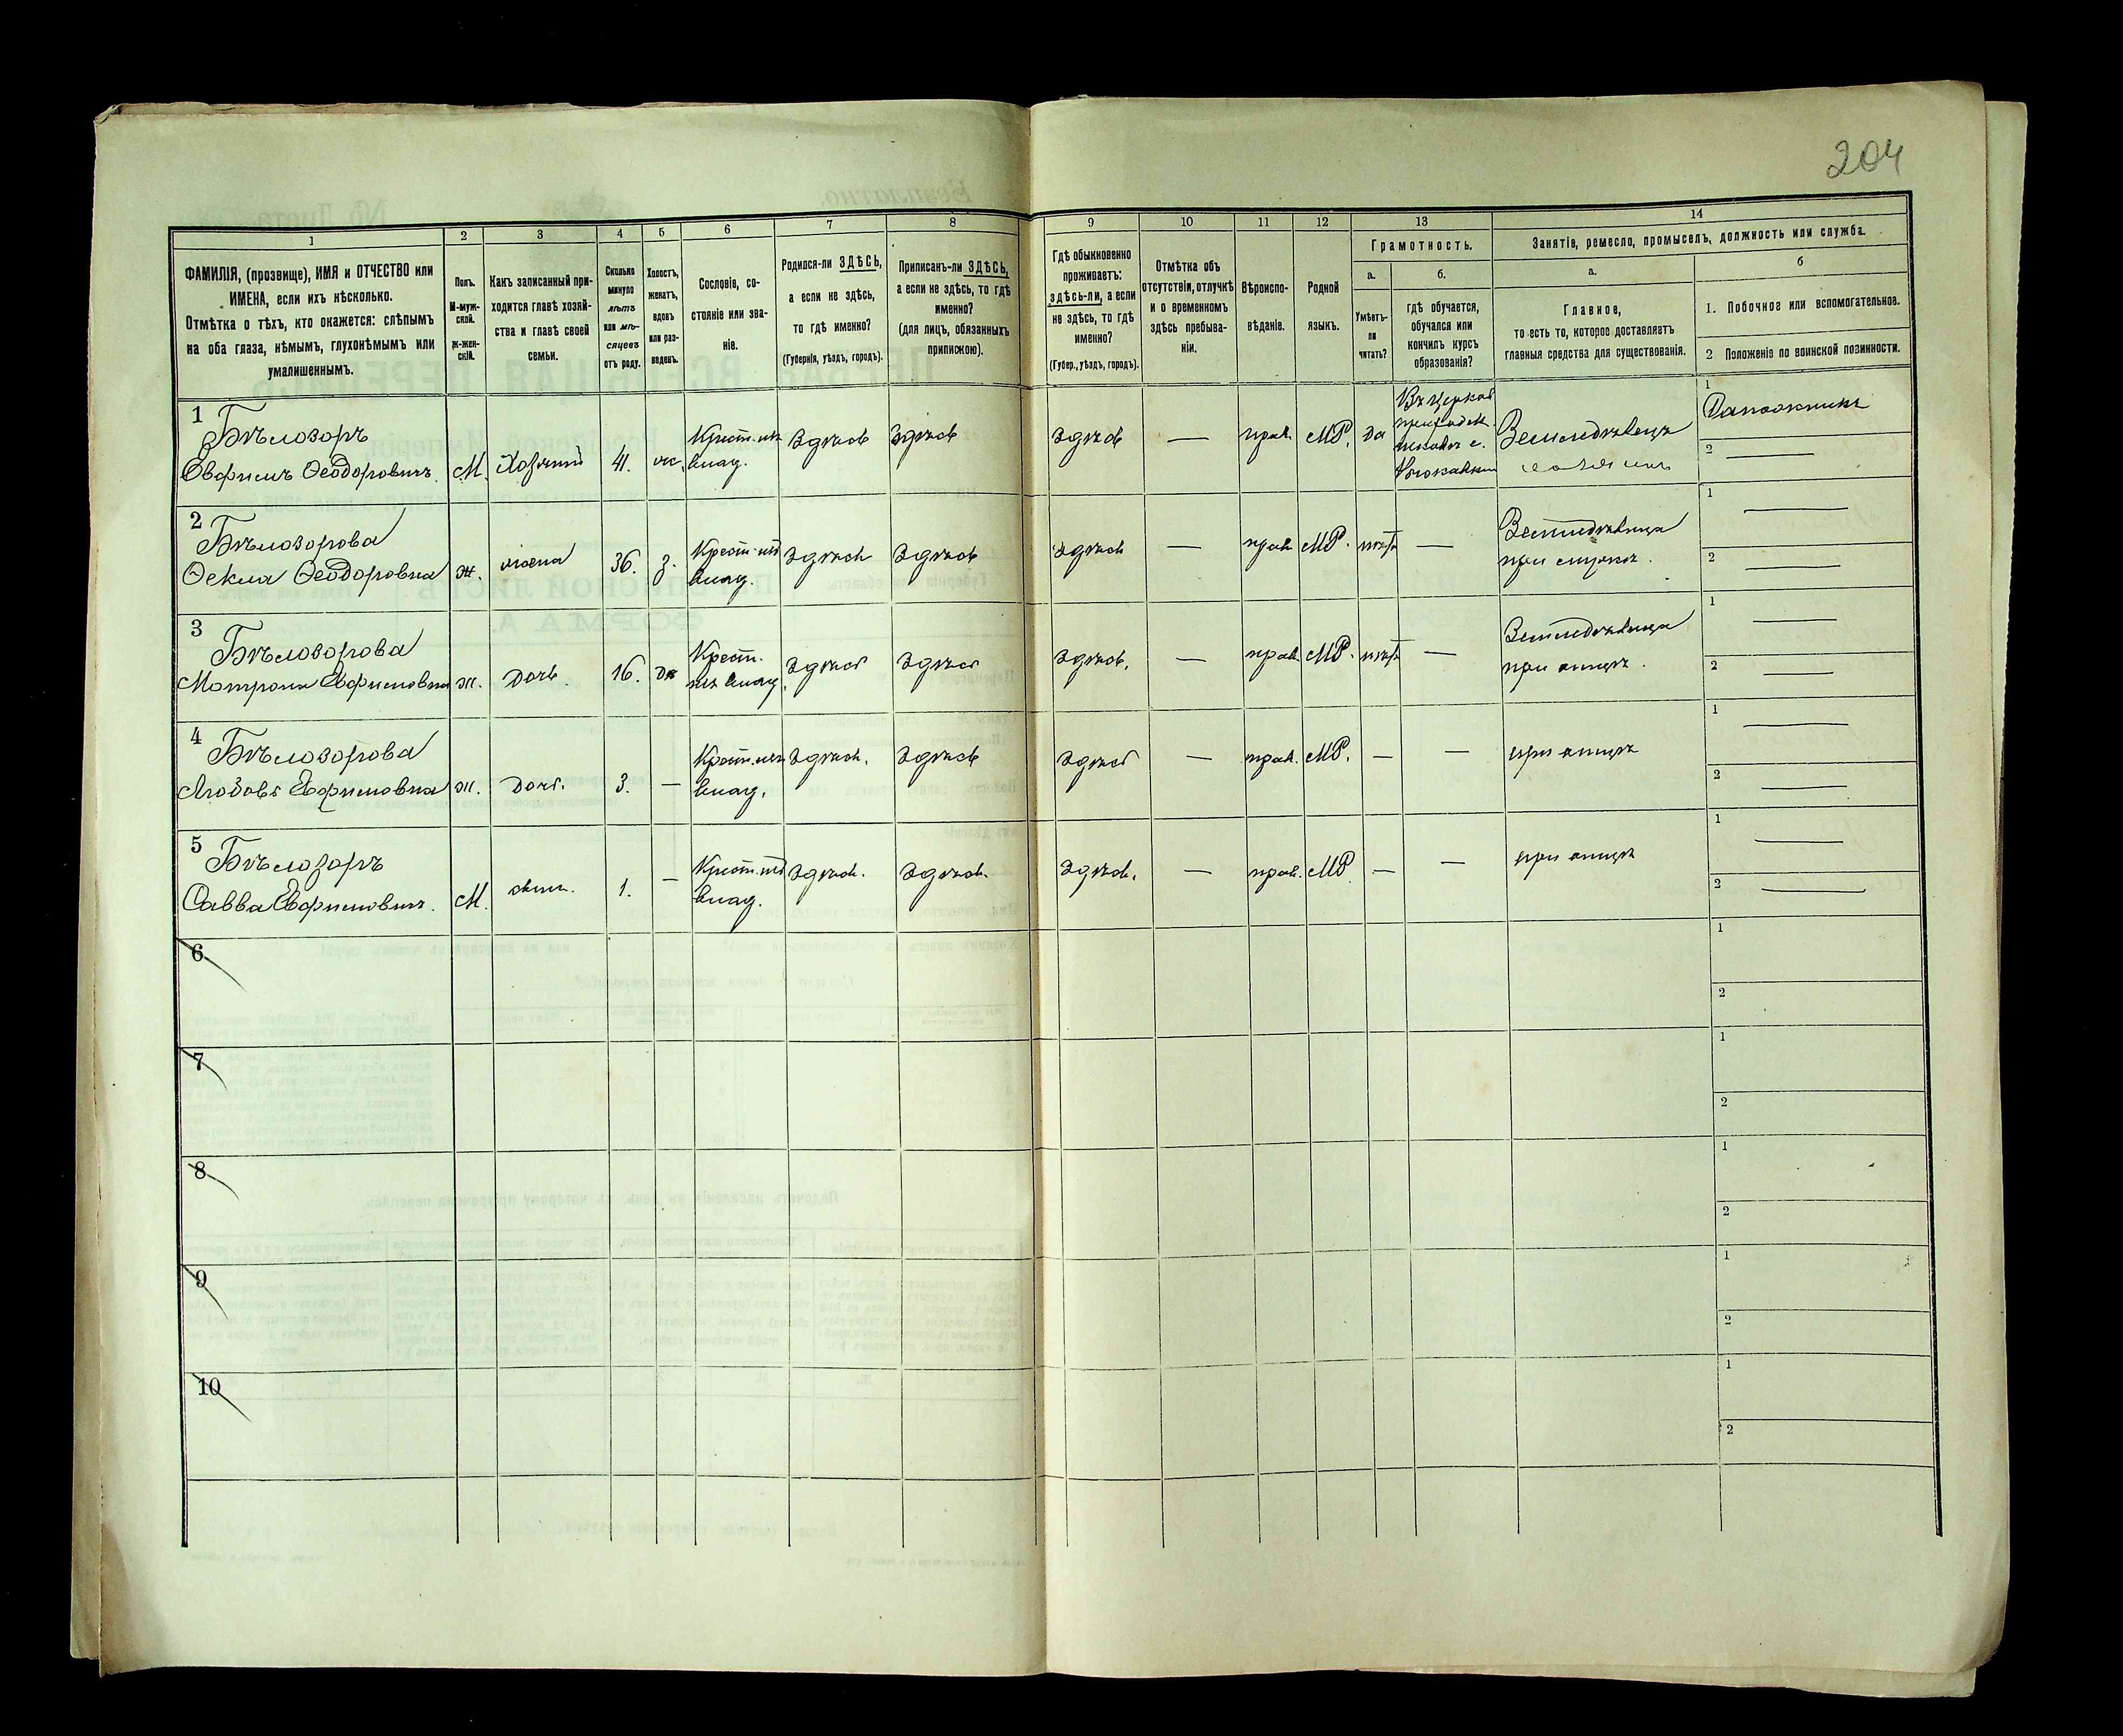 204
1
2
3
4
5
6
7
8
9
10
11
12
13
14
ФАМИЛІЯ, (прозвище), ИМЯ и ОТЧЕСТВО или
ИМЕНА, если ихъ нѣсколько.
Отмѣтка о тѣхъ, кто окажется: слѣпымъ
на оба глаза, нѣмымъ, глухонѣмымъ или
умалишеннымъ.
Полъ.
М-муж-
ской.
Ж-жен-
скій.
Какъ записанный при-
ходится главѣ хозяй-
ства и главѣ своей
семьи.
Сколько
минуло
лѣтъ
или мѣ-
сяцевъ
отъ роду.
Холостъ,
женатъ,
вдовъ
или раз-
веденъ.
Сословіе, со-
стояніе или зва-
ніе.
Родился-ли ЗДѢСЬ,
а если не здѣсь,
то гдѣ именно?
(Губернія, уѣздъ, городъ).
Приписанъ-ли ЗДѢСЬ,
а если не здѣсь, то гдѣ
именно?
(для лицъ, обязанныхъ
припискою).
Гдѣ обыкновенно
проживаетъ:
здѣсь-ли, а если
не здѣсь, то гдѣ
именно?
(Губер., уѣздъ, городъ).
Отмѣтка объ
отсутствіи, отлучкѣ
и о временномъ
здѣсь пребыва-
ніи.
Вѣроиспо-
вѣданіе.
Родной
языкъ.
Грамотность.
а.
Умѣетъ-
ли
читать?
б.
гдѣ обучается,
обучался или
кончилъ курсъ
образованія?
Занятіе, ремесло, промыселъ, должность или служба.
а.
Главное,
то есть то, которое доставляетъ
главныя средства для существованія.
б
1. Побочное или вспомогательное.
2 Положеніе по воинской повинности.
1
Бѣлозоръ
Евфимъ Ѳеодоровичъ.
М.
Хозяинъ
41.
ж.
Крест. изъ
влад.
Здѣсь
Здѣсь
Здѣсь
—
прав.
МР.
да
Въ церков
приходск.
школѣ с.
Земледѣлецъ
хозяинъ
1
Сапожникъ
2 —
2
Бѣлозорова
Ѳекла Ѳеодоровна
ж.
жена
36.
з.
Крест. изъ
влад.
Здѣсь
Здѣсь
Здѣсь
—
прав
МР.
нѣтъ
—
Земледѣлица
при мужѣ.
1 —
2 —
3
Бѣлозорова
Матрона Евфимовна
ж.
Дочь.
16.
дѣ
Крест.
изъ влад.
Здѣсь
Здѣсь
Здѣсь.
—
прав
МР.
нѣтъ
—
Земледѣлица
при отцѣ.
1 —
2 —
4
Бѣлозорова
Любовь Евфимовна
ж.
Дочь.
3.
—
Крест. изъ
влад.
Здѣсь.
Здѣсь
Здѣсь
—
прав.
МР.
—
—
при отцѣ
1 —
2 —
5
Бѣлозоръ
Савва Евфимовичъ.
М.
сынъ.
1.
—
Крест. изъ
влад.
Здѣсь.
Здѣсь.
Здѣсь.
—
прав.
МР.
—
—
при отцѣ
1 —
2 —
6
1
2
7
1
2
8
1
2
9
1
2
10
1
2